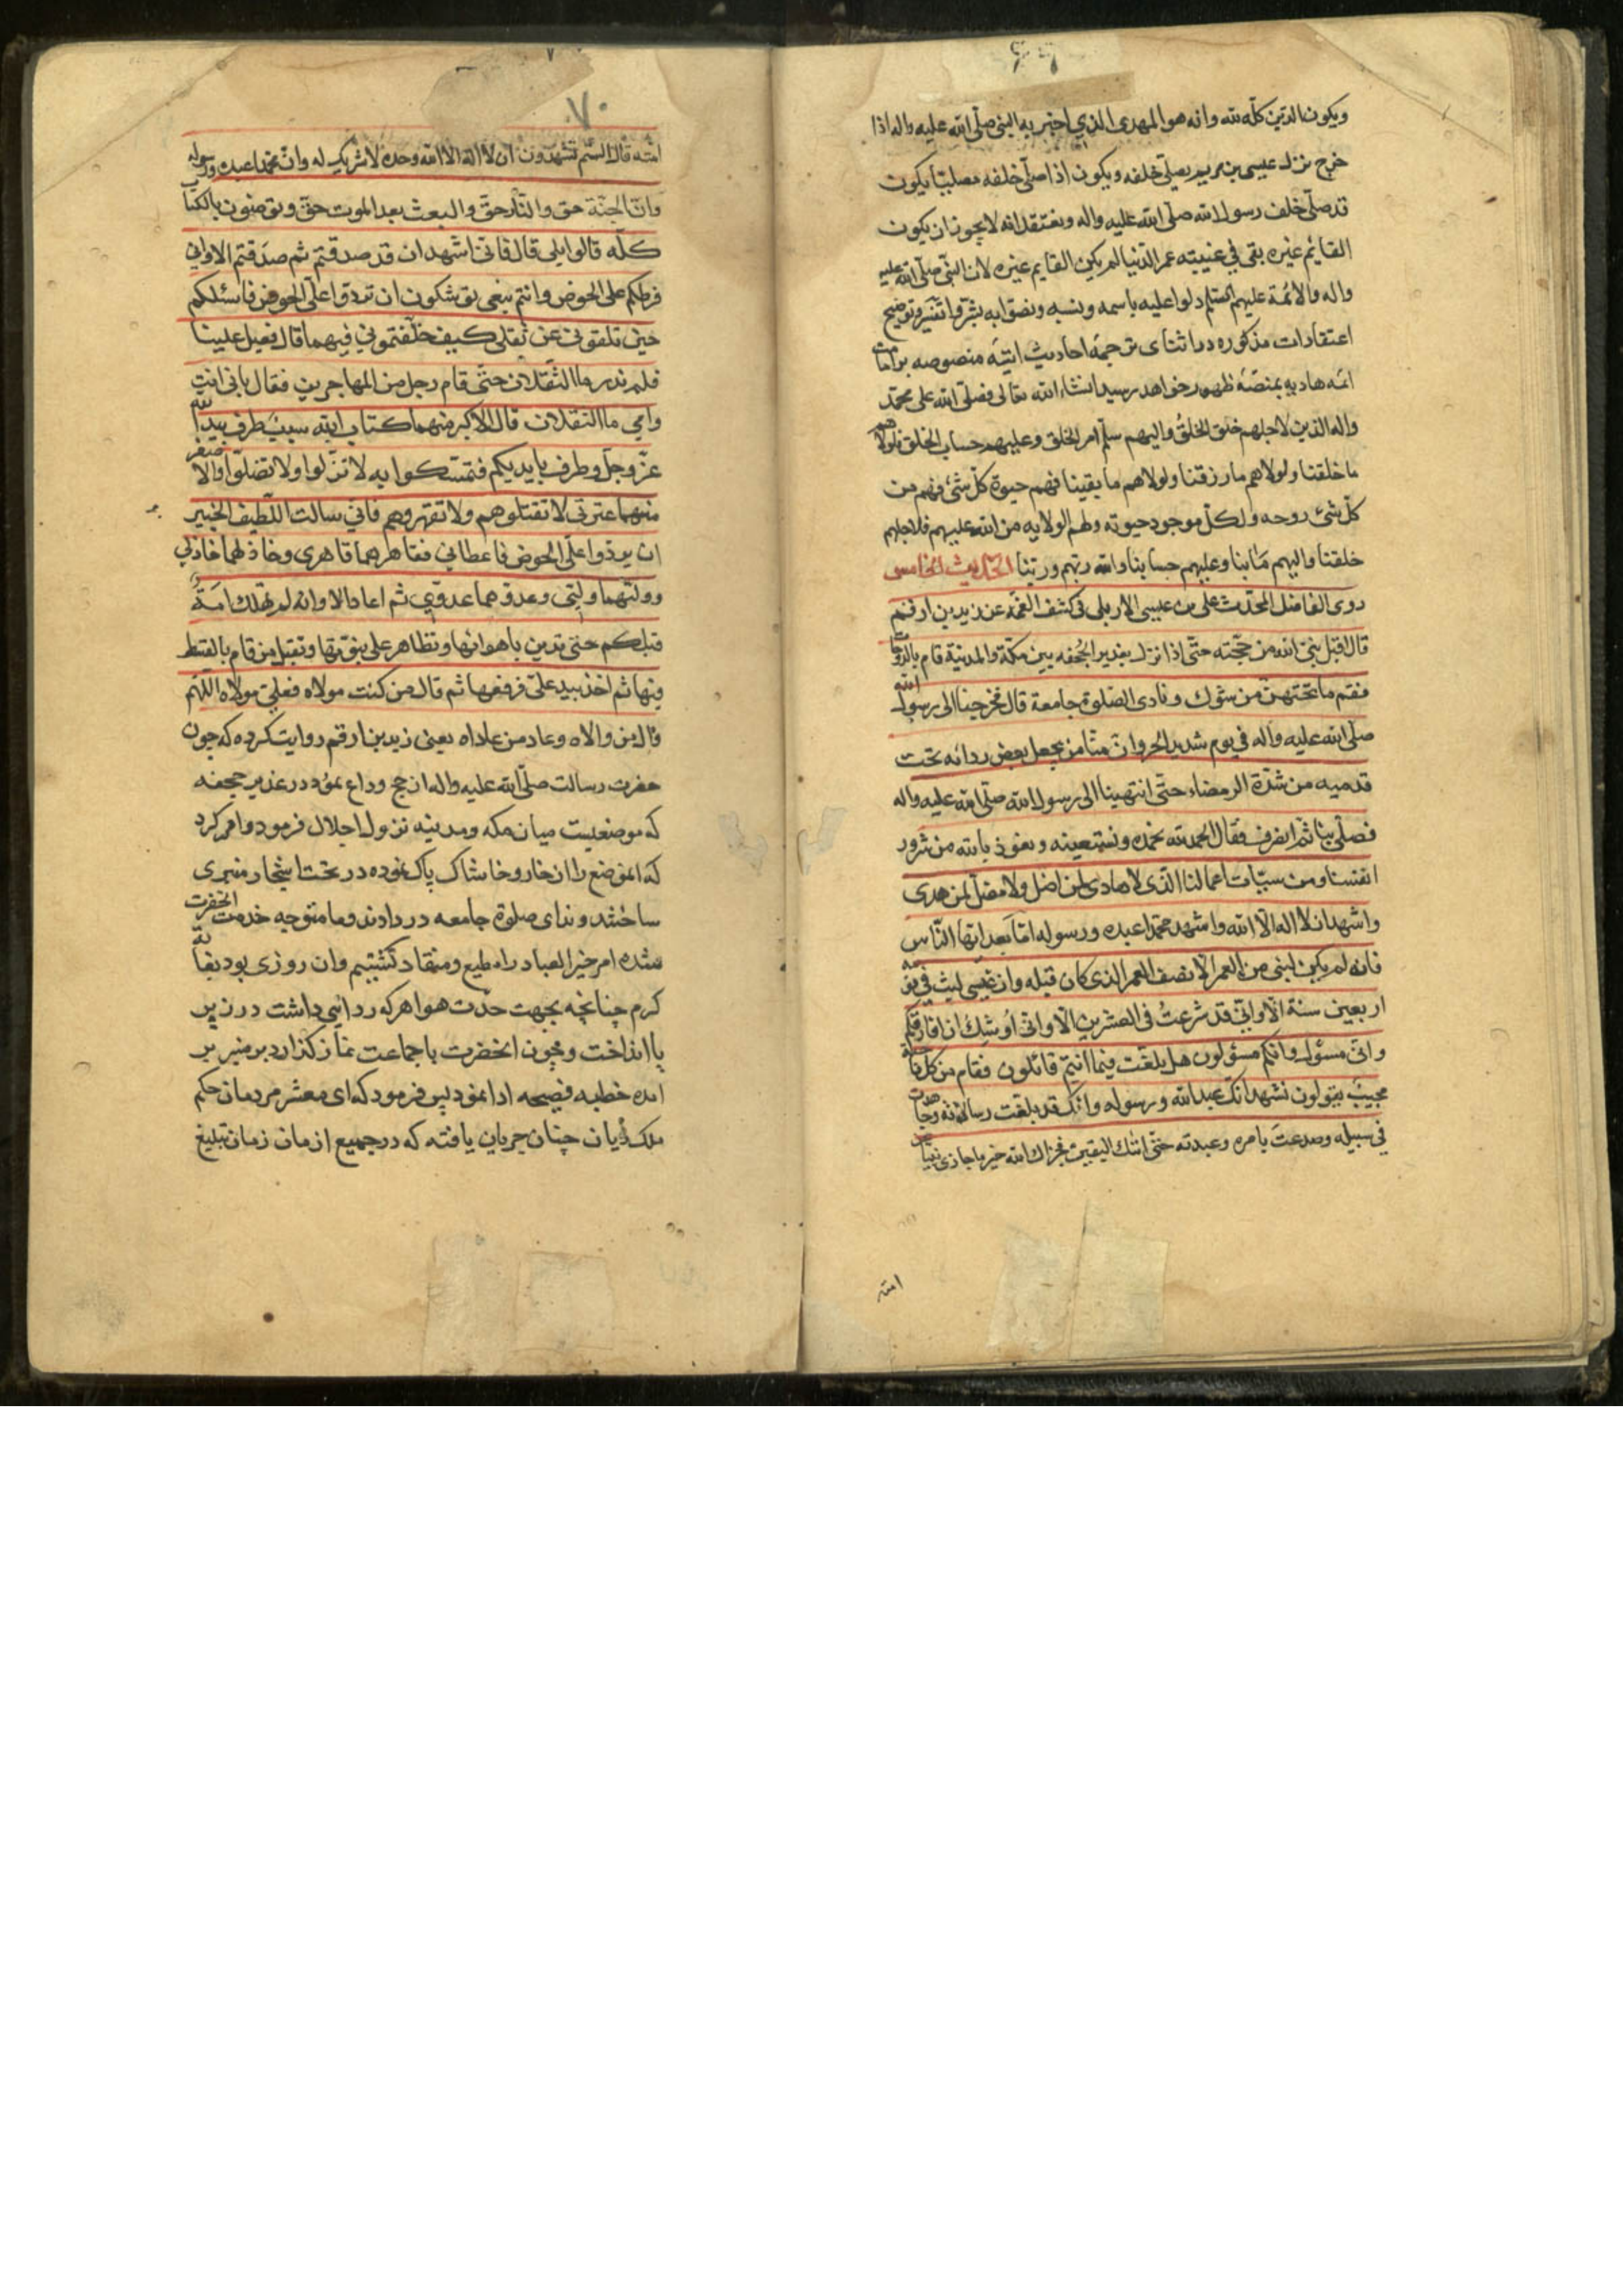 ويكون الدين كلّه لله وانه هو المهدى الذي اخبر به النبى صلّى الله عليه واله اذا
خرج نزل عيسى بن مريم يصلّى خلفه ويكون اذا صلّى خلفه مصليا يكون
قد صلّى خلف رسول الله صلّى الله عليه واله ونعتقد انه لا يجوز ان يكون
القايم غيره بقى في غيبته عمر الدّنيا لم يكن القايم غيره لان النّبى صلّى الله عليه
واله والائمة عليهم السّلم دلوا عليه باسمه ونسبه ونصّوا به بشّروا تفسير وتوضيح
اعتقادات مذكوره در اثناى ترجمۀ احاديث اتيۀ منصوصه بر امامت
ائمۀ هاديه بمنصّۀ ظهور خواهد رسيد انشاء الله تعالى فصلّى الله على محمّد
واله الذين لاجلهم خلق الخلق واليهم سلّم امر الخلق وعليهم حساب الخلق فلولاهم
ما خلقنا ولولاهم ما رزقنا ولولاهم ما بقينا فهم حيوة كلّ شئ فهم من
كلّ شئ روحه ولكلّ موجود حيوته ولهم الولايه من الله عليهم فلاجلهم
خلقنا واليهم مابنا وعليهم حسابنا والله ربّهم وربّنا الحديث الخامس
روى الفاضل المحدّث على بن عيسى الاربلى فى كشف الغمّه عن زيد بن ارقم
قال اقبل نبىّ الله من حجّته حتّى اذا نزل بغدير الجحفه بين مكّة والمدينة قام بالدّوحات
فقمّ ما تحتهنّ من شوك ونادى الصّلوة جامعة قال فخرجنا الى رسول الله
صلّى الله عليه واله فى يوم شديد الحر وانّ منّا من يجعل بعض ردائه تحت
قدميه من شدّة الرمضاء حتّى انتهينا الى رسول الله صلّى الله عليه واله
فصلّى بنا ثمّ انصرف فقال الحمد لله نحمده ونستعينه ونعوذ بالله من شرور
انفسنا ومن سيّات اعمالنا الّذى لا هادى لمن اضل ولا مضلّ لمن هدى
واشهد ان لا اله الّا الله واشهد محمّدا عبده ورسوله امّا بعد ايّها النّاس
فانه لم يكن لنبى من العمر الّا نصف العمر الذى كان قبله وان عيسى لبث فى قومه
اربعين سنة الا وانّي قد شرعتُ فى العشرين الا وانّى اوشك ان افارقكم
وانّى مسئول وانّكم مسئولون هل بلّغت فيما انتم قائلون فقام من كل ناحية
مجيبٌ يقولون نشهد انّك عبد الله ورسوله وانّك قد بلّغت رسالته وجاهدت
فى سبيله وصدعت بامره وعبدته حتّى اتيك اليقين فجزاك الله خير ما جازى نبيا عن
امته
٧٠
امّته قال الستم تشهدون ان لا اله الا الله وحده لا شريك له وان محمّدا عبده ورسوله
وان الجنّة حق والنّار حقّ والبعث بعد الموت حقّ وتومنون بالكتاب
كلّه قالوا بلى قال فانّى اشهد ان قد صدقتم ثم صدّقتم الا وانّي
فرطكم على الحوض وانتم تبعى توشكون ان تردوا علىّ الحوض فاسئلكم
حين تلقونى عن ثقلى كيف خلّفتموني فيهما قال فعيل علينا
فلم ندر ما الثّقلان حتّى قام رجل من المهاجرين فقال بابى انت
وامى ما الثقلان قال الاكبر منهما كتاب الله سبب طرف بيد الله
عزّ وجلّ وطرف بايديكم فتمسّكوا به لا تزلّوا ولا تضلّوا والاصغر
منهما عترتى لا تقتلوهم ولا تقهروهم فانّي سالت اللّطيف الخبير
ان يردوا علىّ الحوض فاعطانى فقاهرهما قاهرى وخاذلهما خاذلى
ووليّهما وليّى وعدوهما عدوّي ثم اعاد الا وانه لم تهلك امةٌ
قبلكم حتى تدين باهوائها وتظاهر على نبوّتها وتقتل من قام بالقسط
فيها ثم اخذ بيد علىّ فرفعها ثم قال من كنت مولاه فعلىّ مولاه اللّهم
وال من والاه وعاد من عاداه يعنى زيد بن ارقم روايت كرده كه چون
حضرت رسالت صلّى الله عليه واله از حج وداع نمود در غدير جحفه
كه موضعيست ميان مكه ومدينه نزول اجلال فرمود وامر كرد
كه انموضع را از خار وخاشاك پاك نموده در تحت اشجار منبرى
ساختند ونداى صلوة جامعه در دادند وما متوجه خدمت انحضرت
شده امر خير العباد را مطيع ومنقاد گشتيم وان روزى بود بغايت
گرم چنانچه بجهت حدّت هوا هركه ردائى داشت در زير
پا انداخت وچون انحضرت با جماعت نماز گذارد بر منبر بر
امده خطبه فصيحه ادا نمود پس فرمود كه اى معشر مردمان حكم
ملك ديان چنان جريان يافته كه در جميع ازمان زمان تبليغ